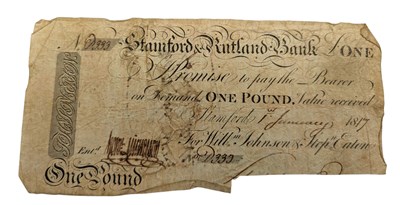 Stamford & Rutland Bank £ONE
I Promise to pay the Bearer
on Demand ONE POUND. Value received
Stamford 1st January 1817
For Willm. Johnson & Stepn. Eaton
Entd.
One Pound